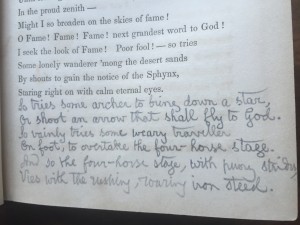 In the proud zenith —
Might I so broaden on the skies of fame!
O Fame! Fame! Fame! next grandest word to God!
I seek the look of Fame! Poor fool! — so tries
Some lonely wanderer 'mong the desert sands
By shouts to gain the notice of the Sphynx,
Staring right on with calm eternal eyes.
So tries some archer to bring down a star,
Or shoot an arrow that shall fly to God.
So vainly tries some weary traveller
On foot, to overtake the four-horse stage.
And so the four-horse stage, with puny strides,
Vies with the rushing, roaring iron steed.